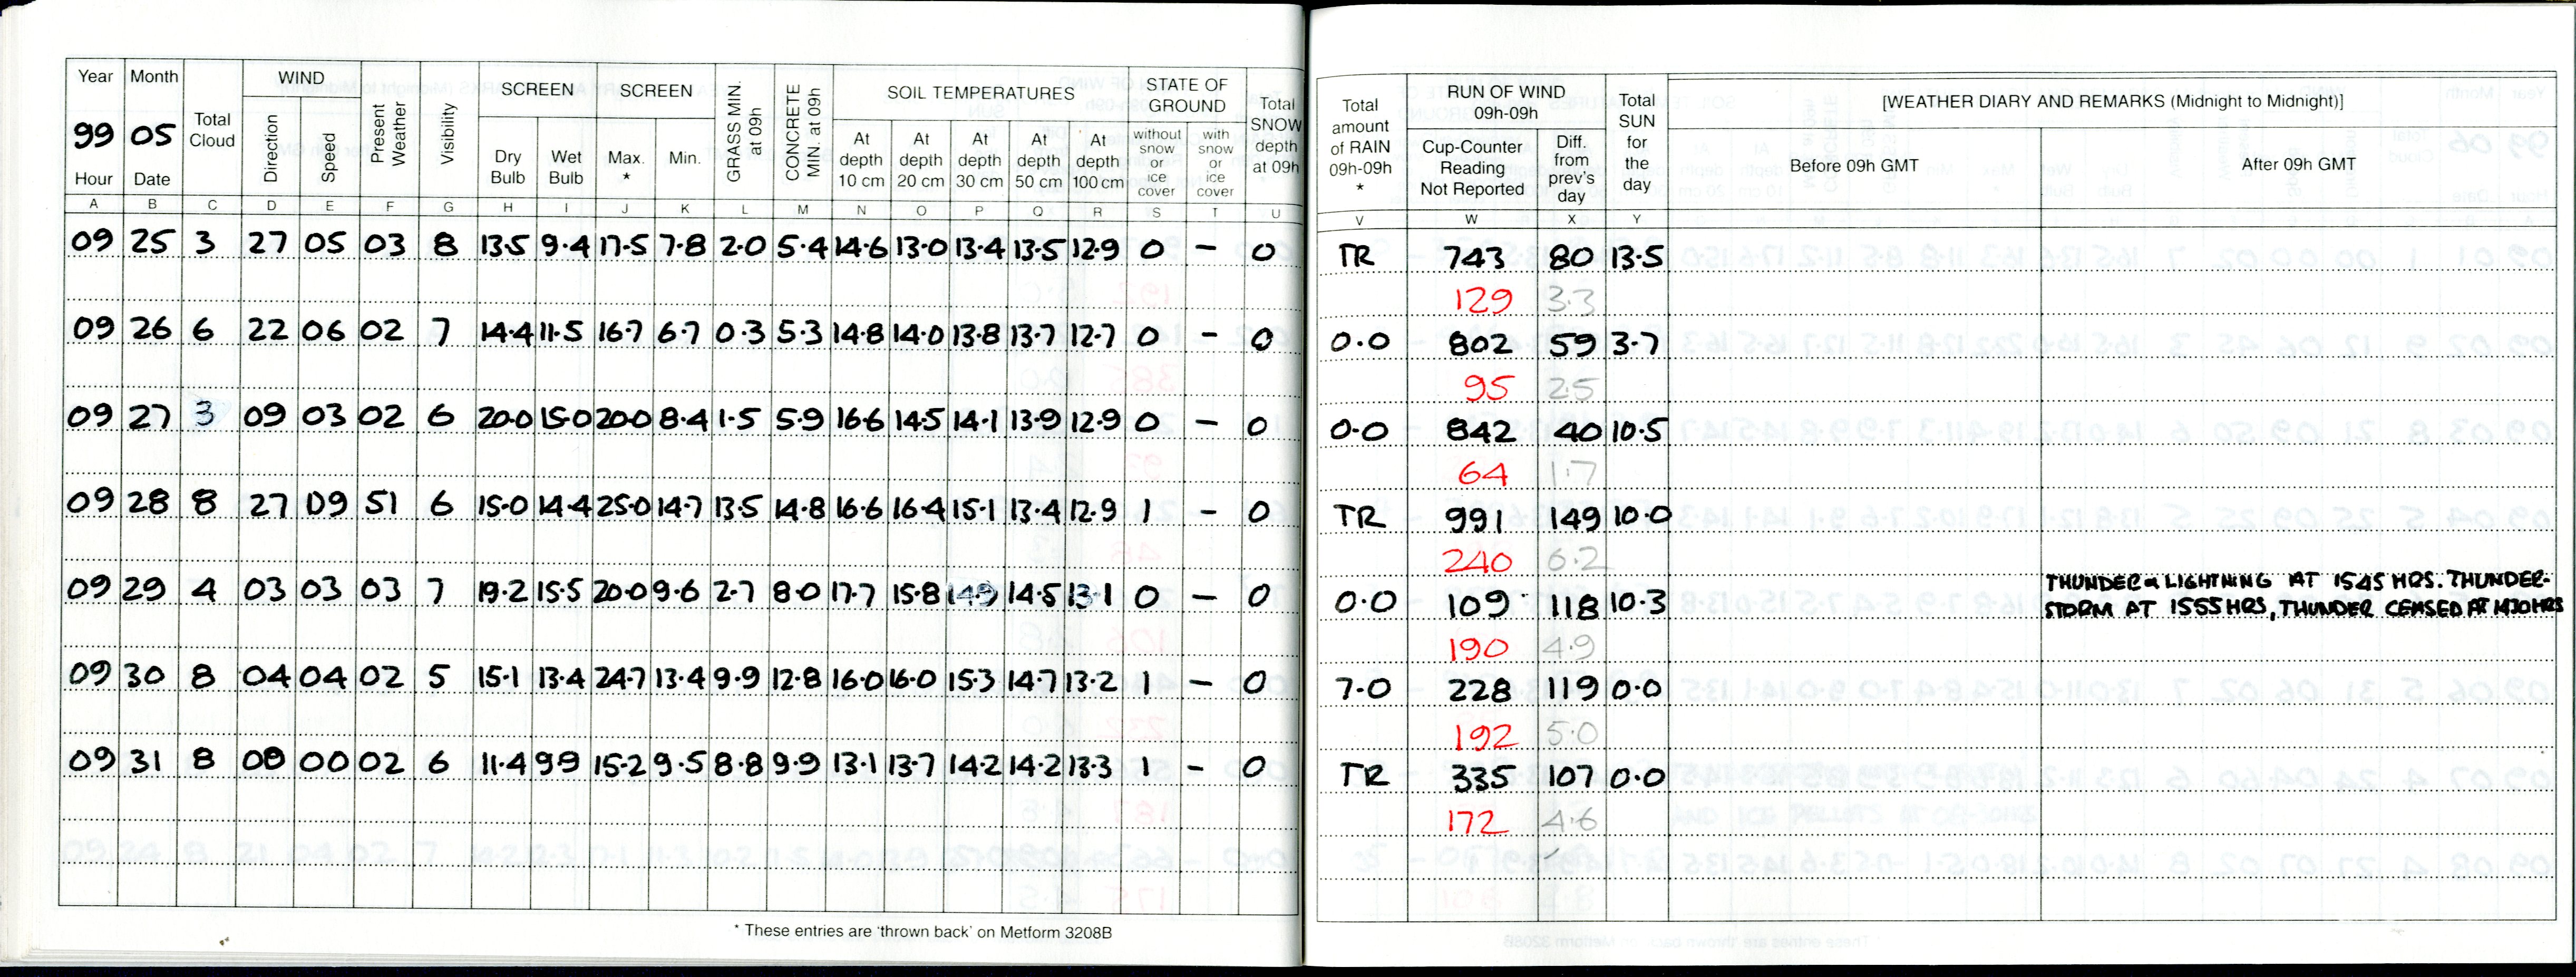 Year Month WIND SCREEN SCREEN SOIL TEMPERATURES STATE OF GROUND
99 05 Total Cloud Direction Speed Present Weather Visibility Dry Bulb Wet Bulb Max. * Min. GRASS MIN. at 09h CONCRETE MIN. at 09h At depth 10 cm At depth 20 cm At depth 30 cm At depth 50 cm At depth 100 cm without snow or ice cover with snow or ice cover Total SNOW depth at 09h
Hour Date
A B C D E F G H I J K L M N O P Q R S T U
09 25 3 27 05 03 8 13.5 9.4 17.5 7.8 2.0 5.4 14.6 13.0 13.4 13.5 12.9 0 – 0
09 26 6 22 06 02 7 14.4 11.5 16.7 6.7 0.3 5.3 14.8 14.0 13.8 13.7 12.7 0 – 0
09 27 3 09 03 02 6 20.0 15.0 20.0 8.4 1.5 5.9 16.6 14.5 14.1 13.9 12.9 0 – 0
09 28 8 27 09 51 6 15.0 14.4 25.0 14.7 13.5 14.8 16.6 16.4 15.1 13.4 12.9 1 – 0
09 29 4 03 03 03 7 19.2 15.5 20.0 9.6 2.7 8.0 17.7 15.8 14.9 14.5 13.1 0 – 0
09 30 8 04 04 02 5 15.1 13.4 24.7 13.4 9.9 12.8 16.0 16.0 15.3 14.7 13.2 1 – 0
09 31 8 00 00 02 6 11.4 9.9 15.2 9.5 8.8 9.9 13.1 13.7 14.2 14.2 13.3 1 – 0
* These entries are 'thrown back' on Metform 3208B
Total amount of RAIN 09h-09h * RUN OF WIND 09h-09h Total SUN for the day [WEATHER DIARY AND REMARKS (Midnight to Midnight)]
Cup-Counter Reading Not Reported Diff. from prev's day Before 09h GMT After 09h GMT
V W X Y
TR 743 80 13.5
129 3.3
0.0 802 59 3.7
95 2.5
0.0 842 40 10.5
64 1.7
TR 991 149 10.0
240 6.2
THUNDER & LIGHTNING AT 1545 HRS. THUNDER-
0.0 109 118 10.3 STORM AT 1555HRS, THUNDER CEASED AT HRS
190 4.9
7.0 228 119 0.0
192 5.0
TR 335 107 0.0
172 4.6